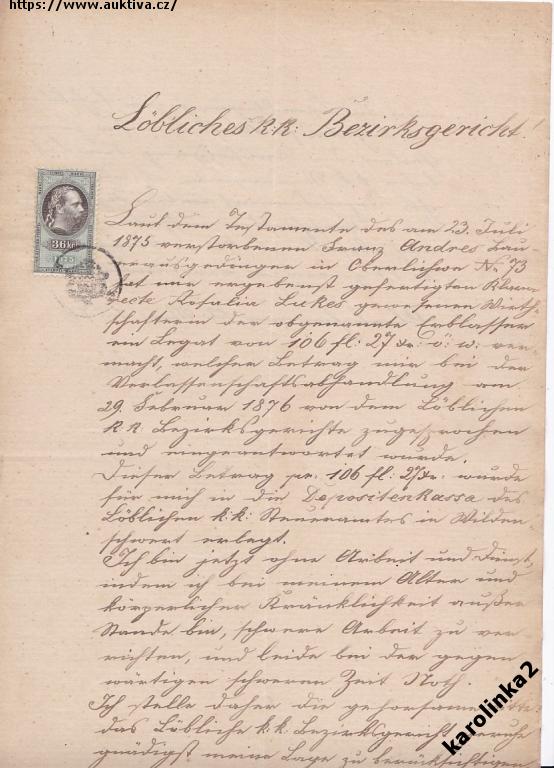 https://www.auktiva.cz/
Löbliches k: k: Bezirksgericht!
36 kr
Laut dem Testamente des am 23. Juli
1875 verstorbenen Franz Andres Bau-
ernausgedinger in Oberlichwe No 73
hat mir ergebenst gefertigten
recte Rosalia Lukes gewesenen Wirth-
schafterin der obgenannte Erblasser
ein Legat von 106 fl: 27 kr. ö: w: ver-
macht, welcher Betrag mir bei der
Verlassenschaftsabhandlung am
29. Februar 1876 von dem Löblichen
k k: Bezirksgerichte zugesprochen
und eingeantwortet wurde.
Dieser Betrag pr. 106 fl: 27 kr. wurde
für mich in die Depositenkassa des
Löblichen k: k: Steueramtes in Wilden-
schwert erlegt.
Ich bin jetzt ohne Arbeit und Dienst,
indem ich bei meinem Alter und
körperlicher Kränklichkeit außer
Stande bin, schwere Arbeit zu ver-
richten, und leide bei der gegen
wärtigen schweren Zeit Noth.
Ich stelle daher die gehorsamste
das Löbliche k: k: Bezirksgericht geruhe
gnädigst meine Lage zu berücksichtigen
karolinka2